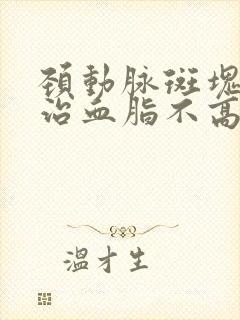 頚動脉斑塊
治血脂不高
溫才生